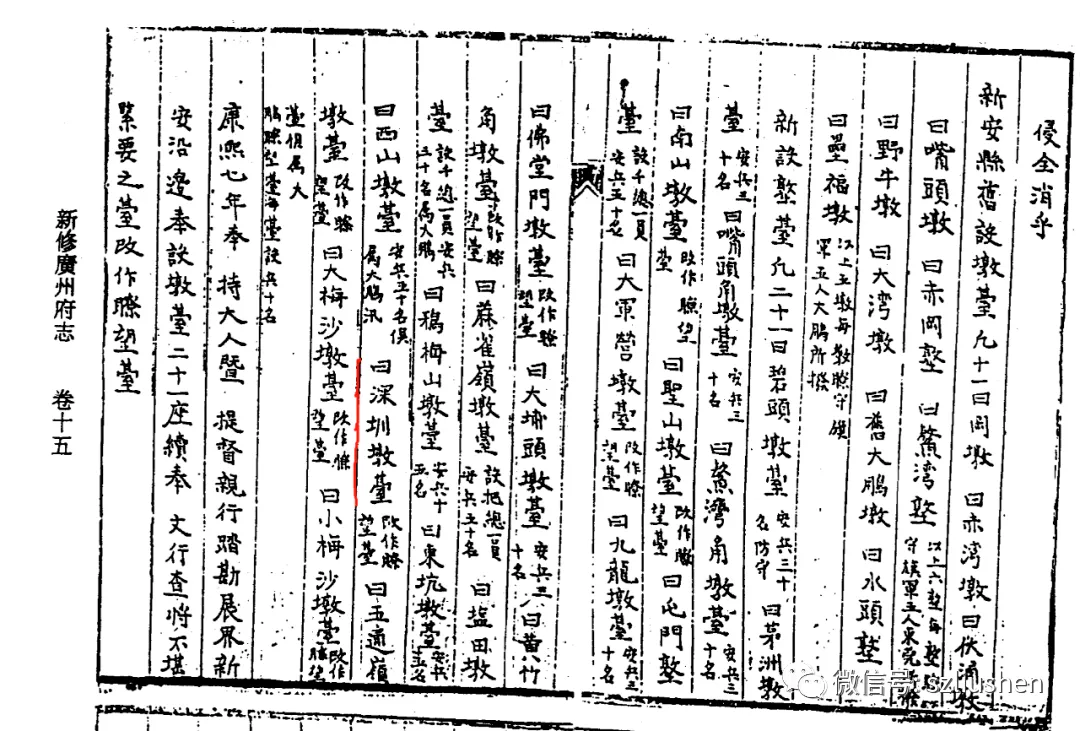 侵全消乎
新安縣舊設墩臺凡十一曰岡墩 曰赤湾墩曰伏涌墩
曰嘴頭墩 曰赤岡墪 曰鰲湾墪 江上六墪每墪瞭守旗軍五人東莞所撥
曰野牛墩 曰大湾墩 曰舊大鵬墩 曰水頭墪
曰疊福墩 江上五墩每墩瞭守旗軍五人大鵬所撥
新設墪臺凡二十一曰碧頭墩臺 安兵三十名防守 曰茅洲墩
臺 安兵三十名 曰嘴頭角墩臺 安兵三十名 曰鰲灣角墩臺 安兵三十名
曰南山墩臺 改作瞭望臺 曰聖山墩臺 改作瞭望臺 曰屯門墪
臺 設千總一員安兵五十名 曰大軍營墩臺 改作瞭望臺 曰九龍墩臺 安兵三十名
曰佛堂門墩臺 改作瞭望臺 曰大埔頭墩臺 安兵三十名 曰黃竹
角墩臺 改作瞭望臺 曰蔴雀嶺墩臺 設把總一員安兵五十名 曰塩田墩
臺 設千總一員安兵三十名屬大鵬 曰鴉梅山墩臺 安兵十五名 曰東坑墩臺 安兵十五名
曰西山墩臺 安兵五十名俱屬大鵬汛 曰深圳墩臺 改作瞭望臺 曰五通嶺
墩臺 改作瞭望臺 曰大梅沙墩臺 改作瞭望臺 曰小梅沙墩臺 改作瞭望
臺俱屬大鵬瞭望臺每臺設兵十名
康熙七年奉 特大人暨 提督親行踏勘展界新
安沿邊奉設墩臺二十一座續奉 文行查將不堪
緊要之臺改作瞭望臺
新修廣州府志 卷十五
微信号: szlfushen